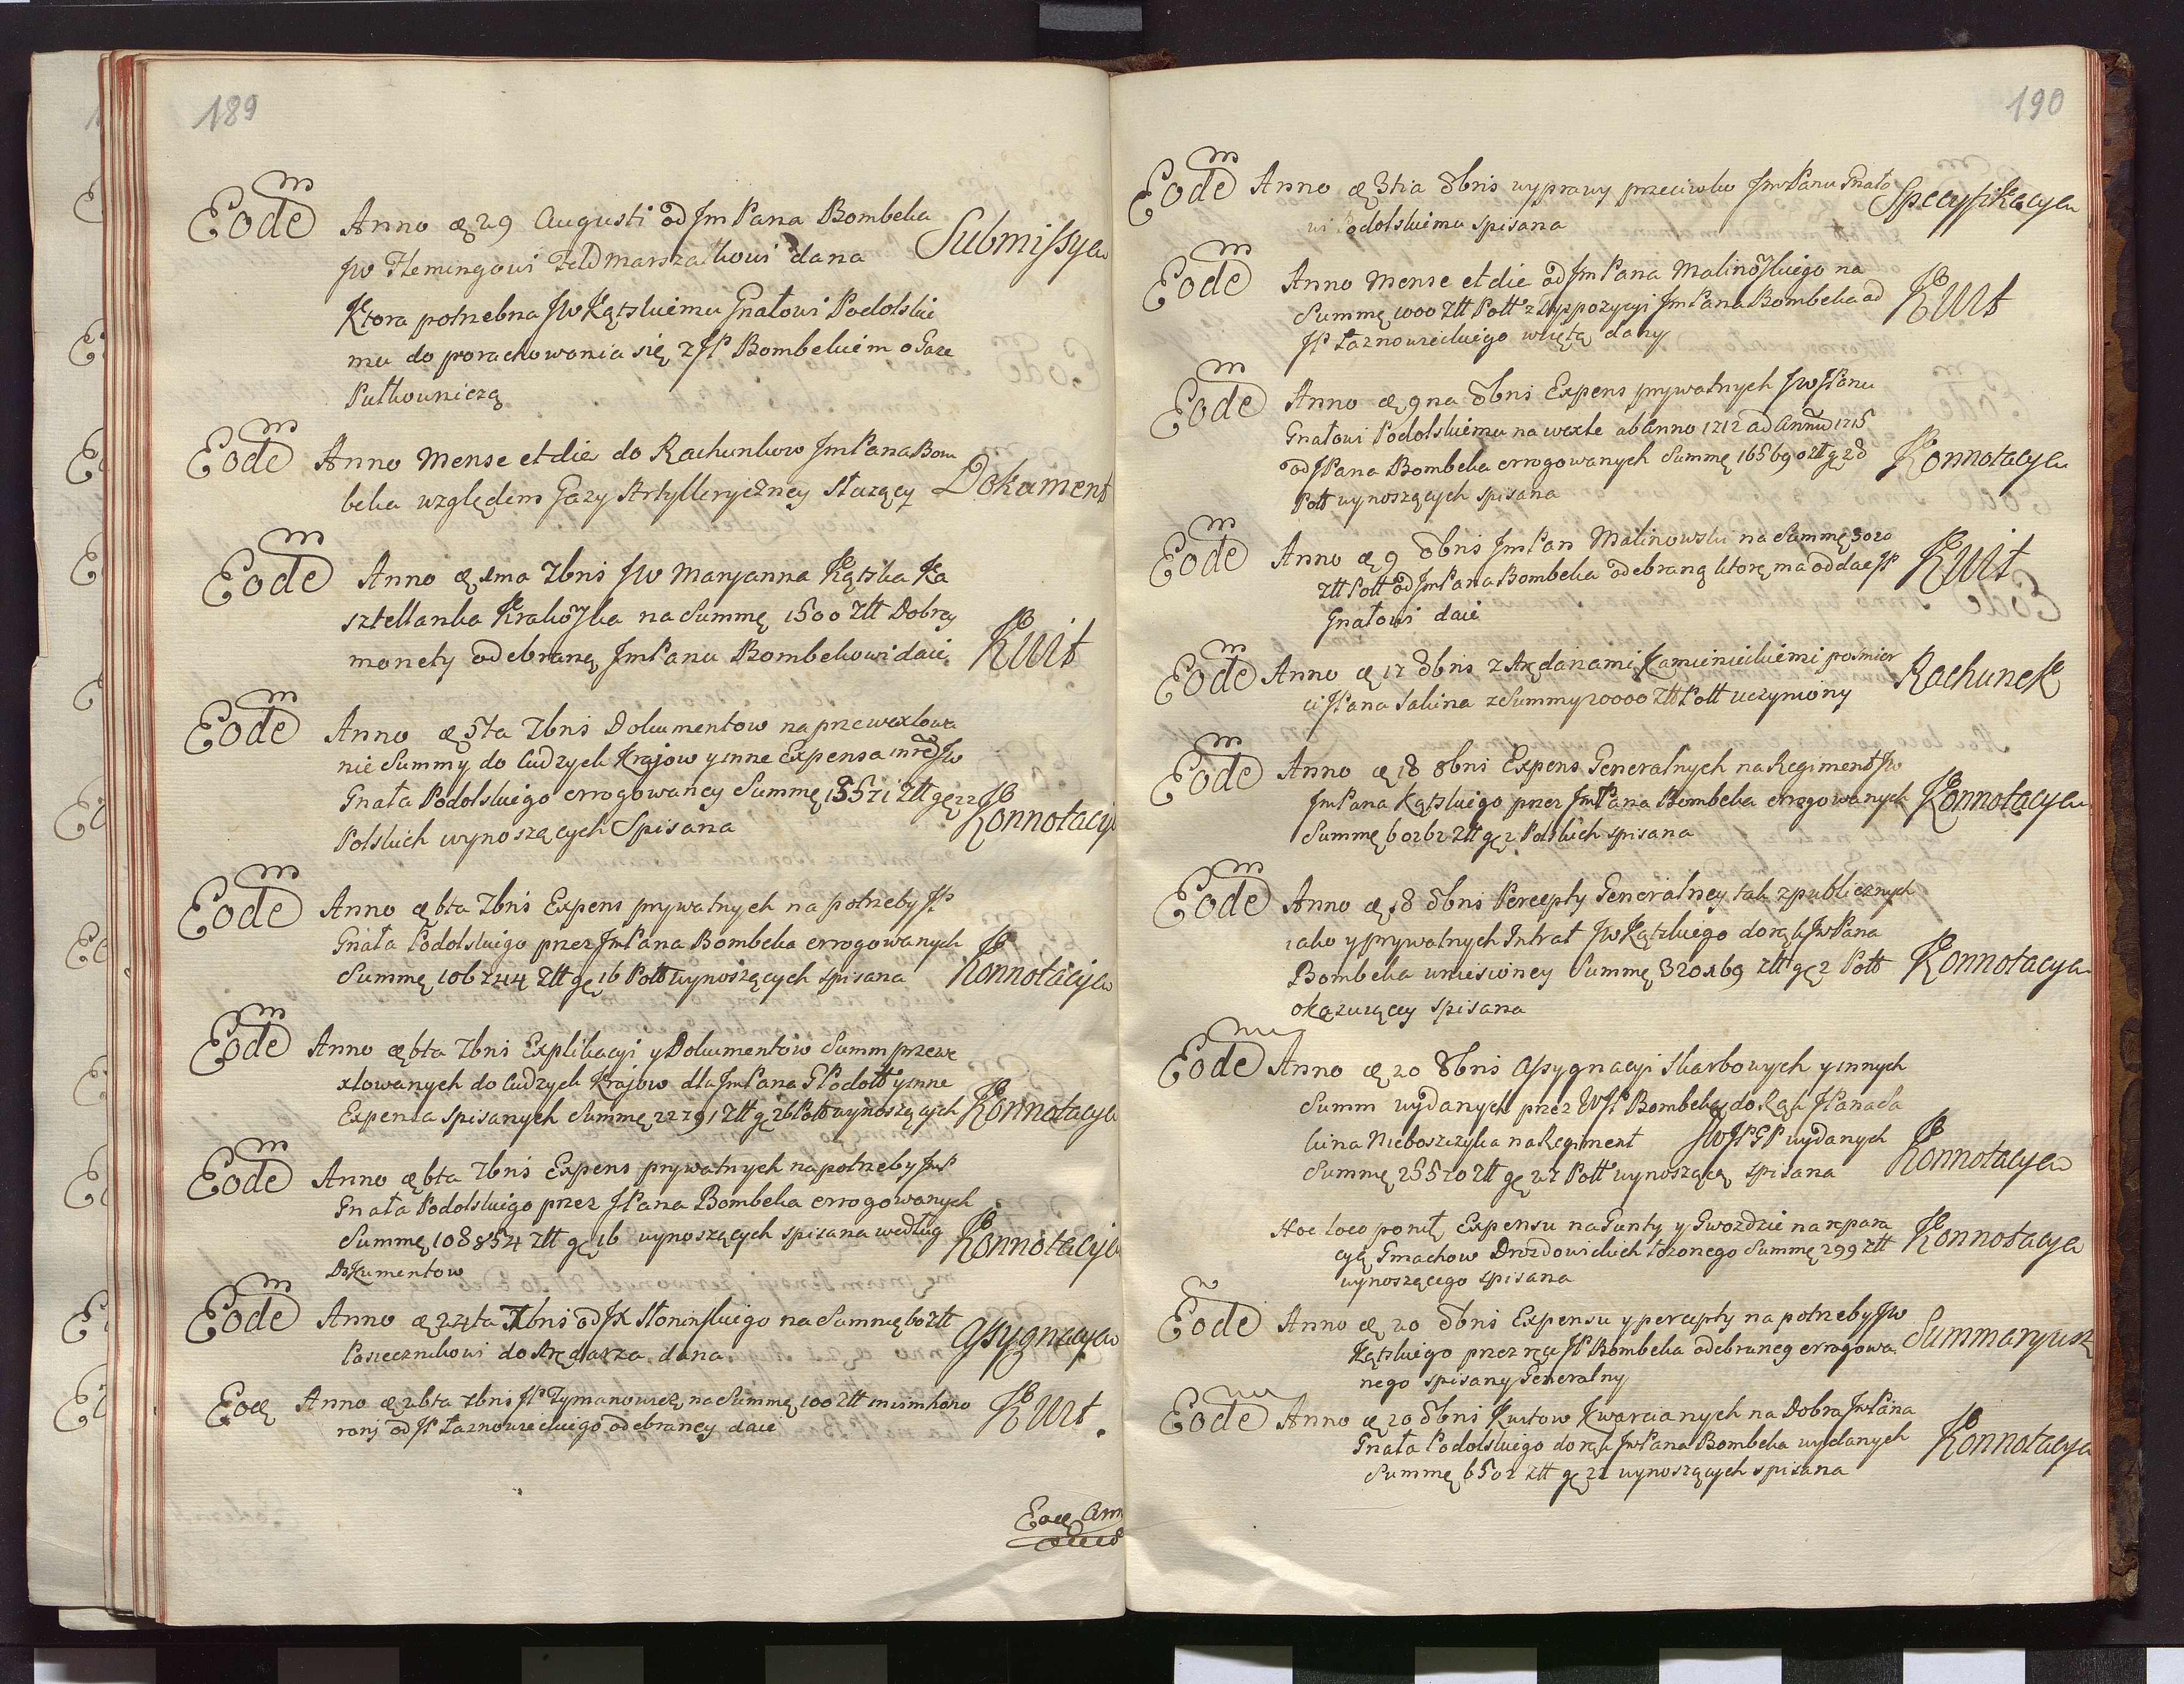 189
Eodem Anno æ 29 Augusti od Jm Pana Bombeka Submissya
Jw Flemingowi Feldmarszałkowi dana
Ktora potrzebna Jw Kątskiemu Gnałowi Podolskie
mu do porachowania się z JP Bombekiem o Gaze
Pułkowniczą
Eodem Anno Mense et die do Rachunkow Jm Pana Bom
beka względem Gazy Artylleryiczney Służący Dokument
Eodem Anno æ 1ma 7bris Jw Maryanna Kątska Ka
sztellanka Krakoska na Summę 1500 Złł Dobrey
monety odebraną Jm Panu Bombekowi daie Kwit
Eodem Anno æ 5ta 7bris Dokumentow na przewexlowa
nie Summy do Cudzych Krajow y inne Expensa in rem Jw
Gnała Podolskiego errogowaney Summę 15571 Złł gę 22
Polskich wynoszących Spisana Konnotacya
Eodem Anno æ 6ta 7bris Expens prywatnych na potrzeby JP
Gnała Podolskiego przez Jm Pana Bombeka errogowanych
Summę 106744 Złł gę 16 Poll wynoszących spisana Konnotacya
Eodem Anno æ 6ta 7bris Explikacyi y Dokumentow Summ przewe
xlowanych do Cudzych Krajow dla Jm Pana G Podoll y inne
Expensa spisanych Summę 22791 Złł gę 26 Poll wynoszących Konnotacya
Eodem Anno æ 6ta 7bris Expens prywatnych na potrzeby JmP
Gnała Podolskiego przez JPana Bombeka errogowanych
Summę 108854 Złł gę 16 wynoszących spisana według Konnotacya
Dokumentow
Eodem Anno æ 24ta 7bris od JX Słoninskiego na Summę 60 Złł
Pasiecznikowi do Arędarza dana Assygnacya
Eoæ Anno æ 26ta 7bris JP Tymanowskę na Summę 100 Złł
rony od JP Łaznowieckiego odebraney daie Kwit.
Eoæ Ann
190
Eodem Anno æ 3tia 8bris wyprawy przeciwko Jm Panu Gnało
wi Podolskiemu spisana Specyfikacya
Eodem Anno Mense et die od Jm Pana Malinoskiego na
Summę 1000 Złł Poll z Dyspozycyi Jm Pana Bombeka od
JP Łaznowieckiego wziętą dany Kwit
Eodem Anno æ 9na 8bris Expens prywatnych Jw JPanu
Gnałowi Podolskiemu na wexle ab Anno 1712 ad Annum 1715
od JPana Bombeka errogowanych Summę 165690 złł gę 28 Konnotacya
Poll wynoszących spisana
Eodem Anno æ 9 8bris Jm Pan Malinowski na Summę 3020
Złł Poll od Jm Pana Bombeka odebraną ktorę ma oddać JP Kwit
Gnałowi daie
Eodem Anno æ 17 8bris z Arędarzami Kamienieckiemi po smier
ci JPana Sakina z Summy 20000 Złł Poll uczyniony Rachunek
Eodem Anno æ 18 8bris Expens Generalnych na Regiment Jw
Jm Pana Kątskiego przez Jm Pana Bombeka errogowanych Konnotacya
Summę 60262 Złł gę 2 Polskich spisana
Eodem Anno æ 18 8bris Percepty Generalney tak z publicznych
iako y prywatnych Intrat Jw Kątskiego do rąk Jm Pana
Bombeka wniesioney Summę 320169 Złł gę 2 Poll Konnotacya
okazuiącey spisana
Eodem Anno æ 20 8bris Assygnacyi Skarbowych y innych
Summ wydanych przez WJP Bombeka do Rąk JPana Sa
kina Nieboszczyka na Regiment JWJPGP wydanych
Summę 25570 Złł gę 27 Poll wynoszącą spisana Konnotacya
Hoc loco ponit Expensu na Gunty y Gwozdzie na repara
cyą Gmachow Drozdowskich łożonego Summę 299 Złł Konnotacya
wynoszącego spisana
Eodem Anno æ 20 8bris Expensu y percepty na potrzeby Jw
Kątskiego przez rąk JP Bombeka odebraneg errogowa Summaryusz
nego spisany Generalny
Eodem Anno æ 20 8bris Kwitow Kwarcianych na Dobra Jm Pana
Gnała Podolskiego do rąk Jm Pana Bombeka wydanych Konnotacya
Summę 6502 Złł gę 22 wynoszących spisana